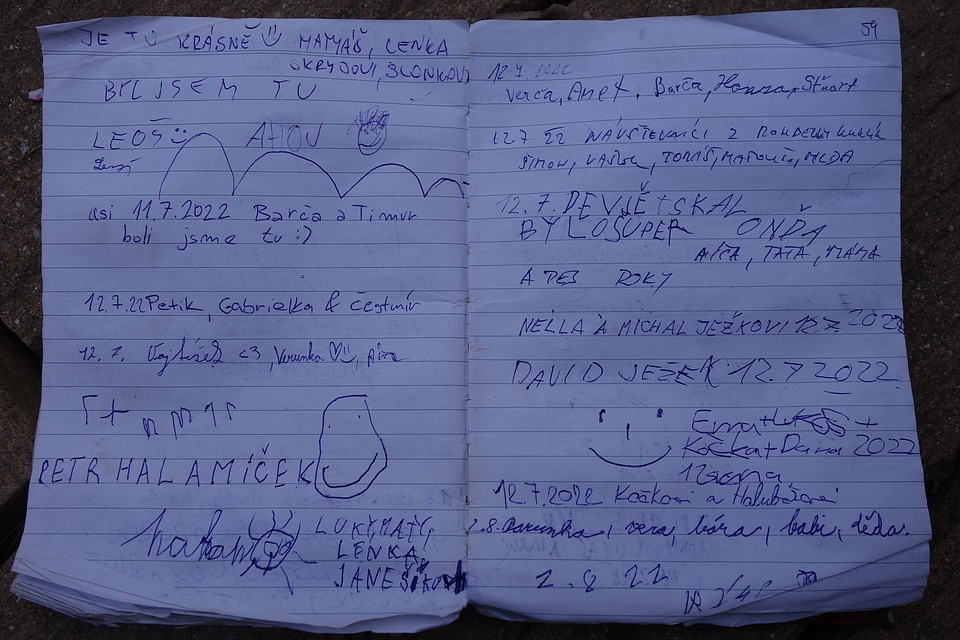 JE TU KRÁSNĚ MATYÁŠ, LENKA
ŠKRYDOVI, SLONKOVI
BYL JSEM TU
LEOŠ
AHOJ
asi 11.7.2022 Barča a Timur
boli jsme tu :)
12.7.22 Petik, Gabrielka & čestmír
12. 7. Vojtíšek <3, Verunka
PETR HALAMÍČEK
LUKY, MATY,
LENKA
JANEŠÍKOVI
59
12.7.2022
Verča, Anet, Barča, Honza, Stuart
12.7.22 NÁVŠTEVNÍCI Z
ŠIMON, VAŠEK, TOMÁŠ, MATOUŠ, MLDA
12.7. DEVJĚTSKAL
BYLOSUPER ONDA
TATA, MAMA
A PES ROKY
NELLA A MICHAL JEŽKOVI 12.7 2022
DAVID JEŽEK 12.7 2022.
Ema+
Kočka+ 2022
12.7.2022 Kočkovi a
2.8. vera, bára, babi, děda.
2.8 22